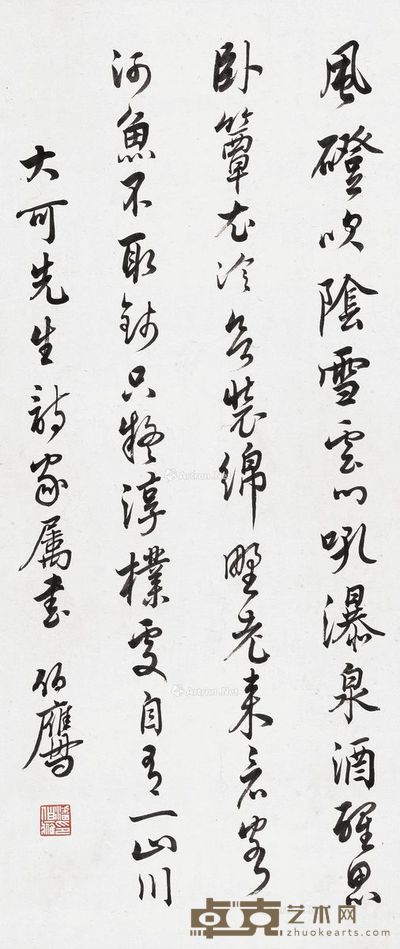 風磴吹陰雪雲門吼瀑泉酒醒思
卧簟衣冷欲裝綿野老来看客
河魚不取錢只疑淳樸處自有一山川
大可先生詩家属書 伯鷹
潘伯鷹
Artron.Net
Artron.Net
卓克艺术网
zhuokearts.com